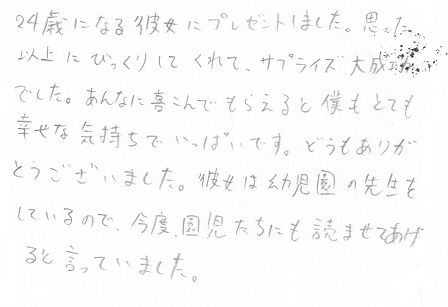 24歳になる彼女にプレゼントしました。思った
以上にびっくりしてくれて、サプライズ大成功
でした。あんなに喜こんでもらえると僕もとても
幸せな気持ちでいっぱいです。どうもありが
とうございました。彼女は幼児園の先生を
しているので、今度、園児たちにも読ませてあげ
ると言っていました。